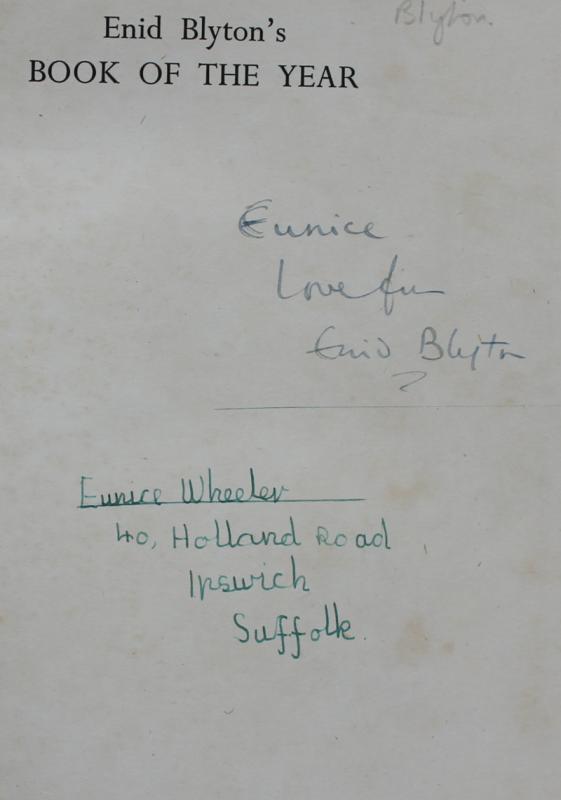 Blyton.
Enid Blyton's
BOOK OF THE YEAR
Eunice
Love from
Enid Blyton
Eunice Wheeler
40, Holland Road
Ipswich
Suffolk.